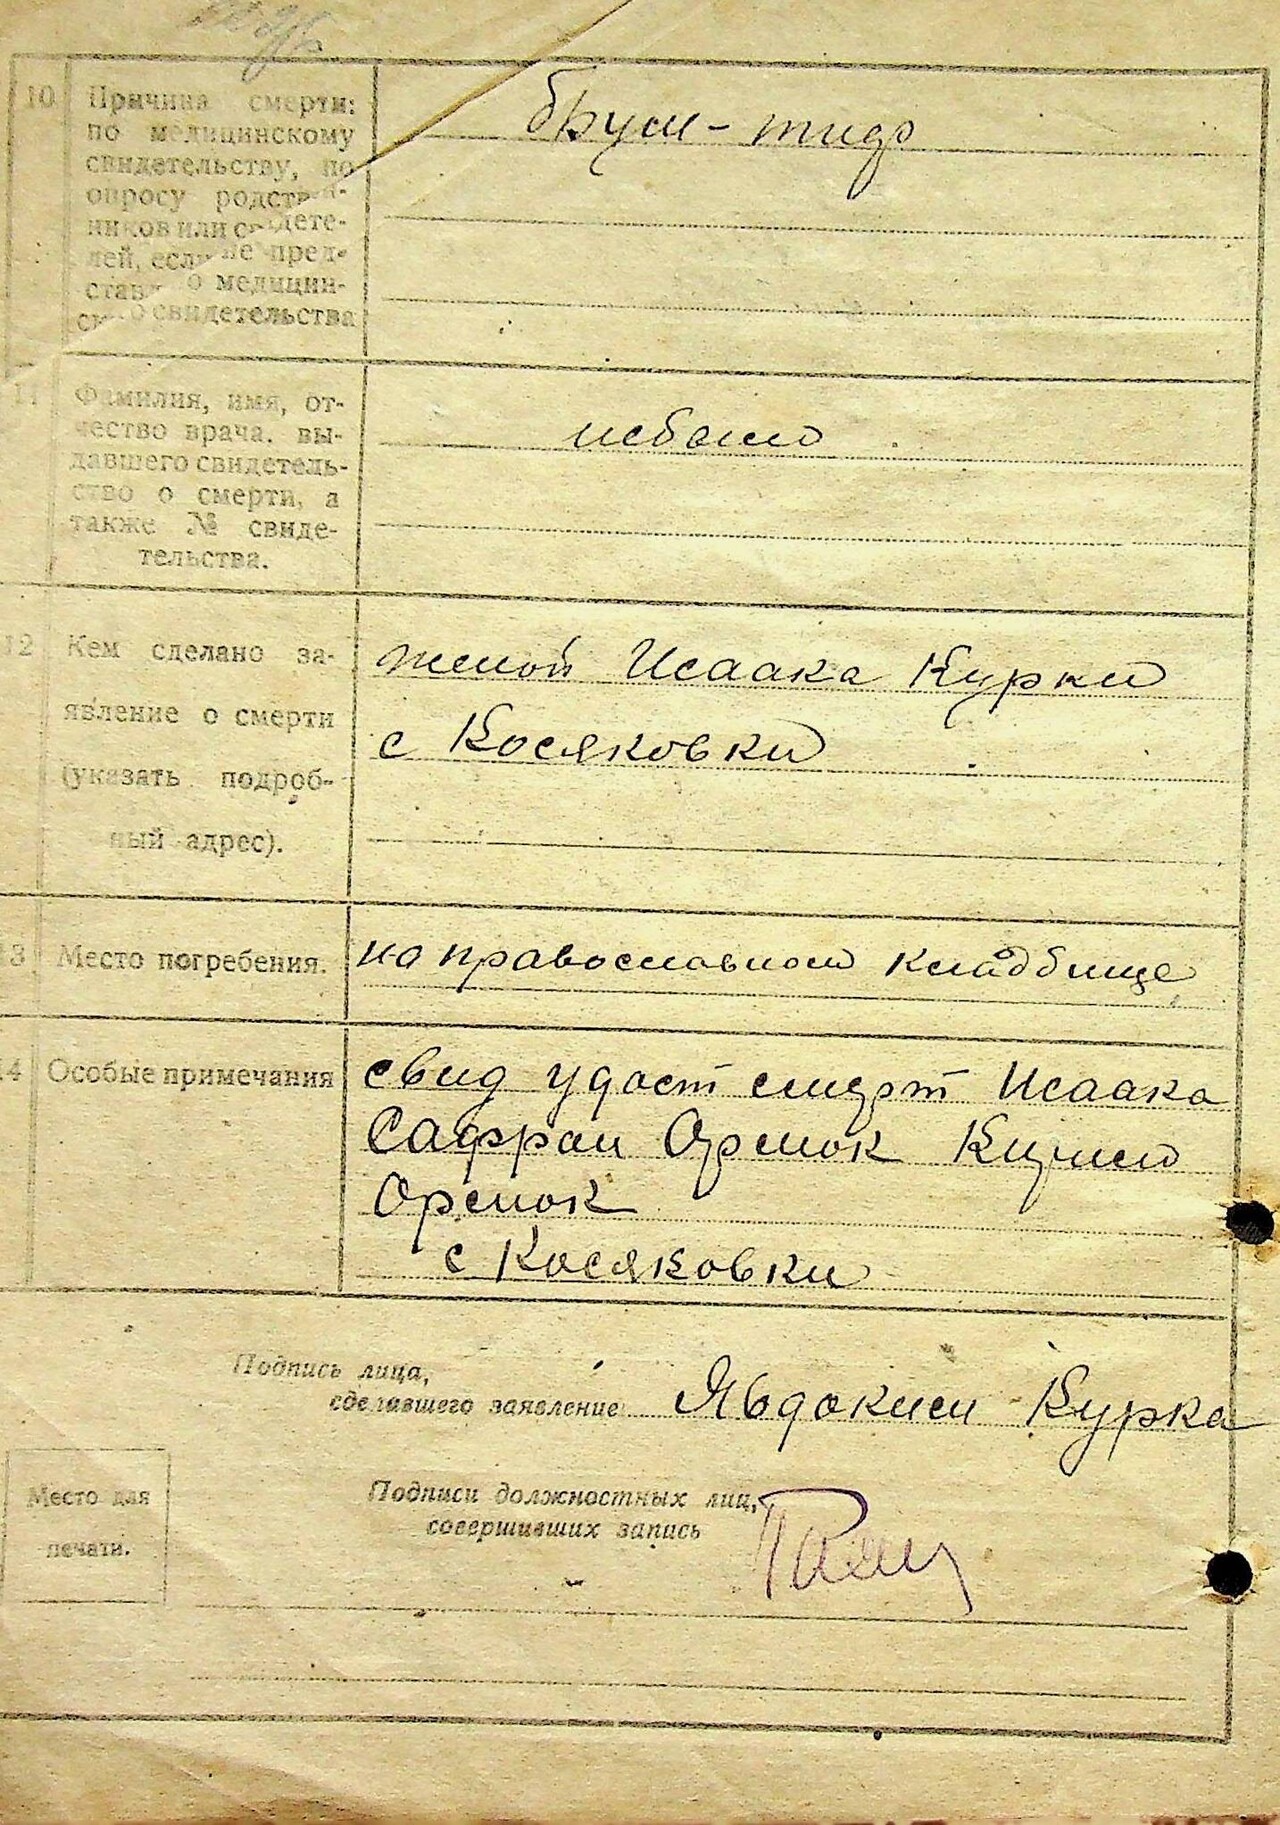 10 Причина смерти:
по медицинскому
свидетельству, по
опросу родствен-
ников или свидете-
лей, если не пред-
ставлено медицин-
ского свидетельства
брюш-тиф
11 Фамилия, имя, от-
чество врача, вы-
давшего свидетель-
ство о смерти, а
также № свиде-
тельства.
небыло
12 Кем сделано за-
явление о смерти
(указать подроб-
ный адрес).
женой Исаака Курки
с Косяковки
13 Место погребения.
на православном кладбище
14 Особые примечания
свид удост смерт Исаака
Сафрон Орснок
Орснок
с Косяковки
Подпись лица,
сделавшего заявление
Явдокиси Курка
Подписи должностных лиц,
совершивших запись
Место для
печати.